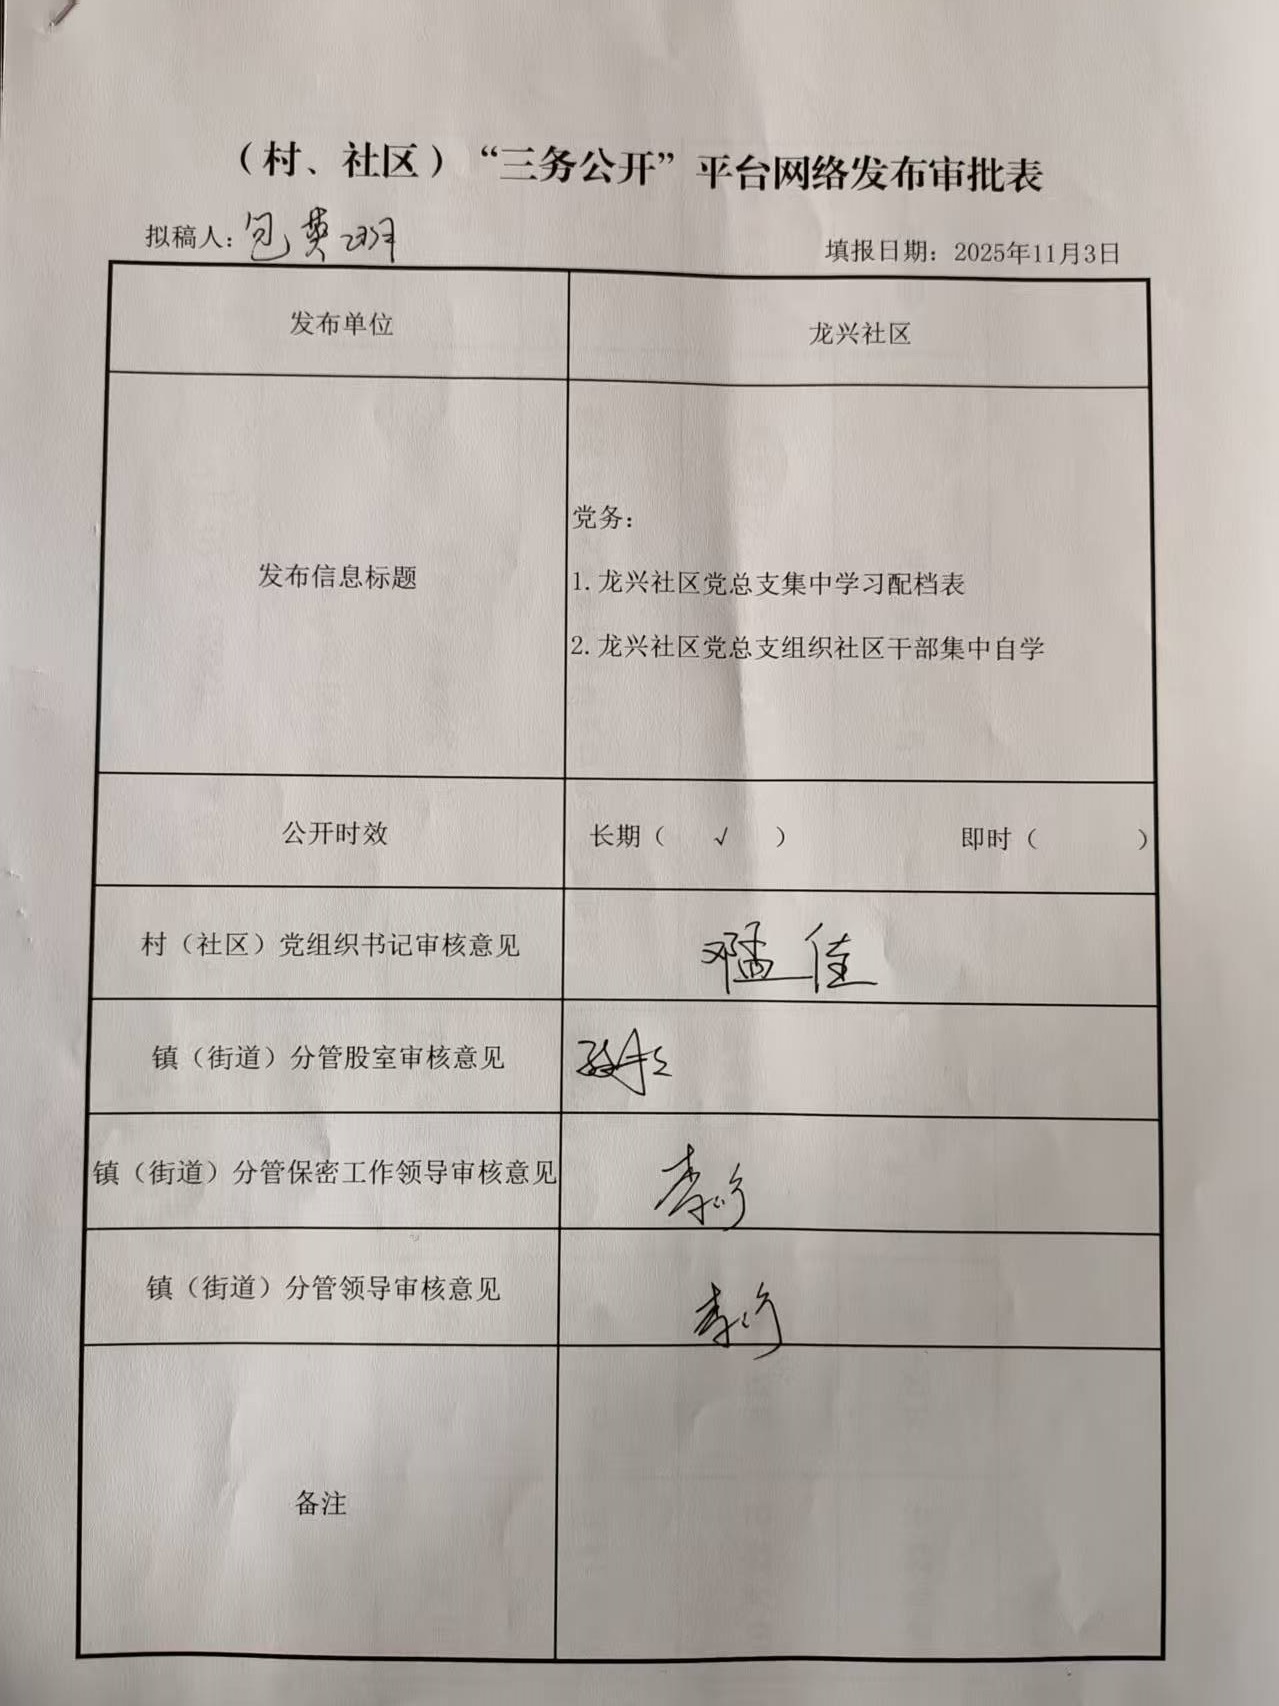 （村、社区）“三务公开”平台网络发布审批表
拟稿人：包英明
填报日期：2025年11月3日
发布单位
龙兴社区
发布信息标题
党务：
1.龙兴社区党总支集中学习配档表
2.龙兴社区党总支组织社区干部集中自学
公开时效
长期（ √ ） 即时（ ）
村（社区）党组织书记审核意见
佳
镇（街道）分管股室审核意见
镇（街道）分管保密工作领导审核意见
镇（街道）分管领导审核意见
备注